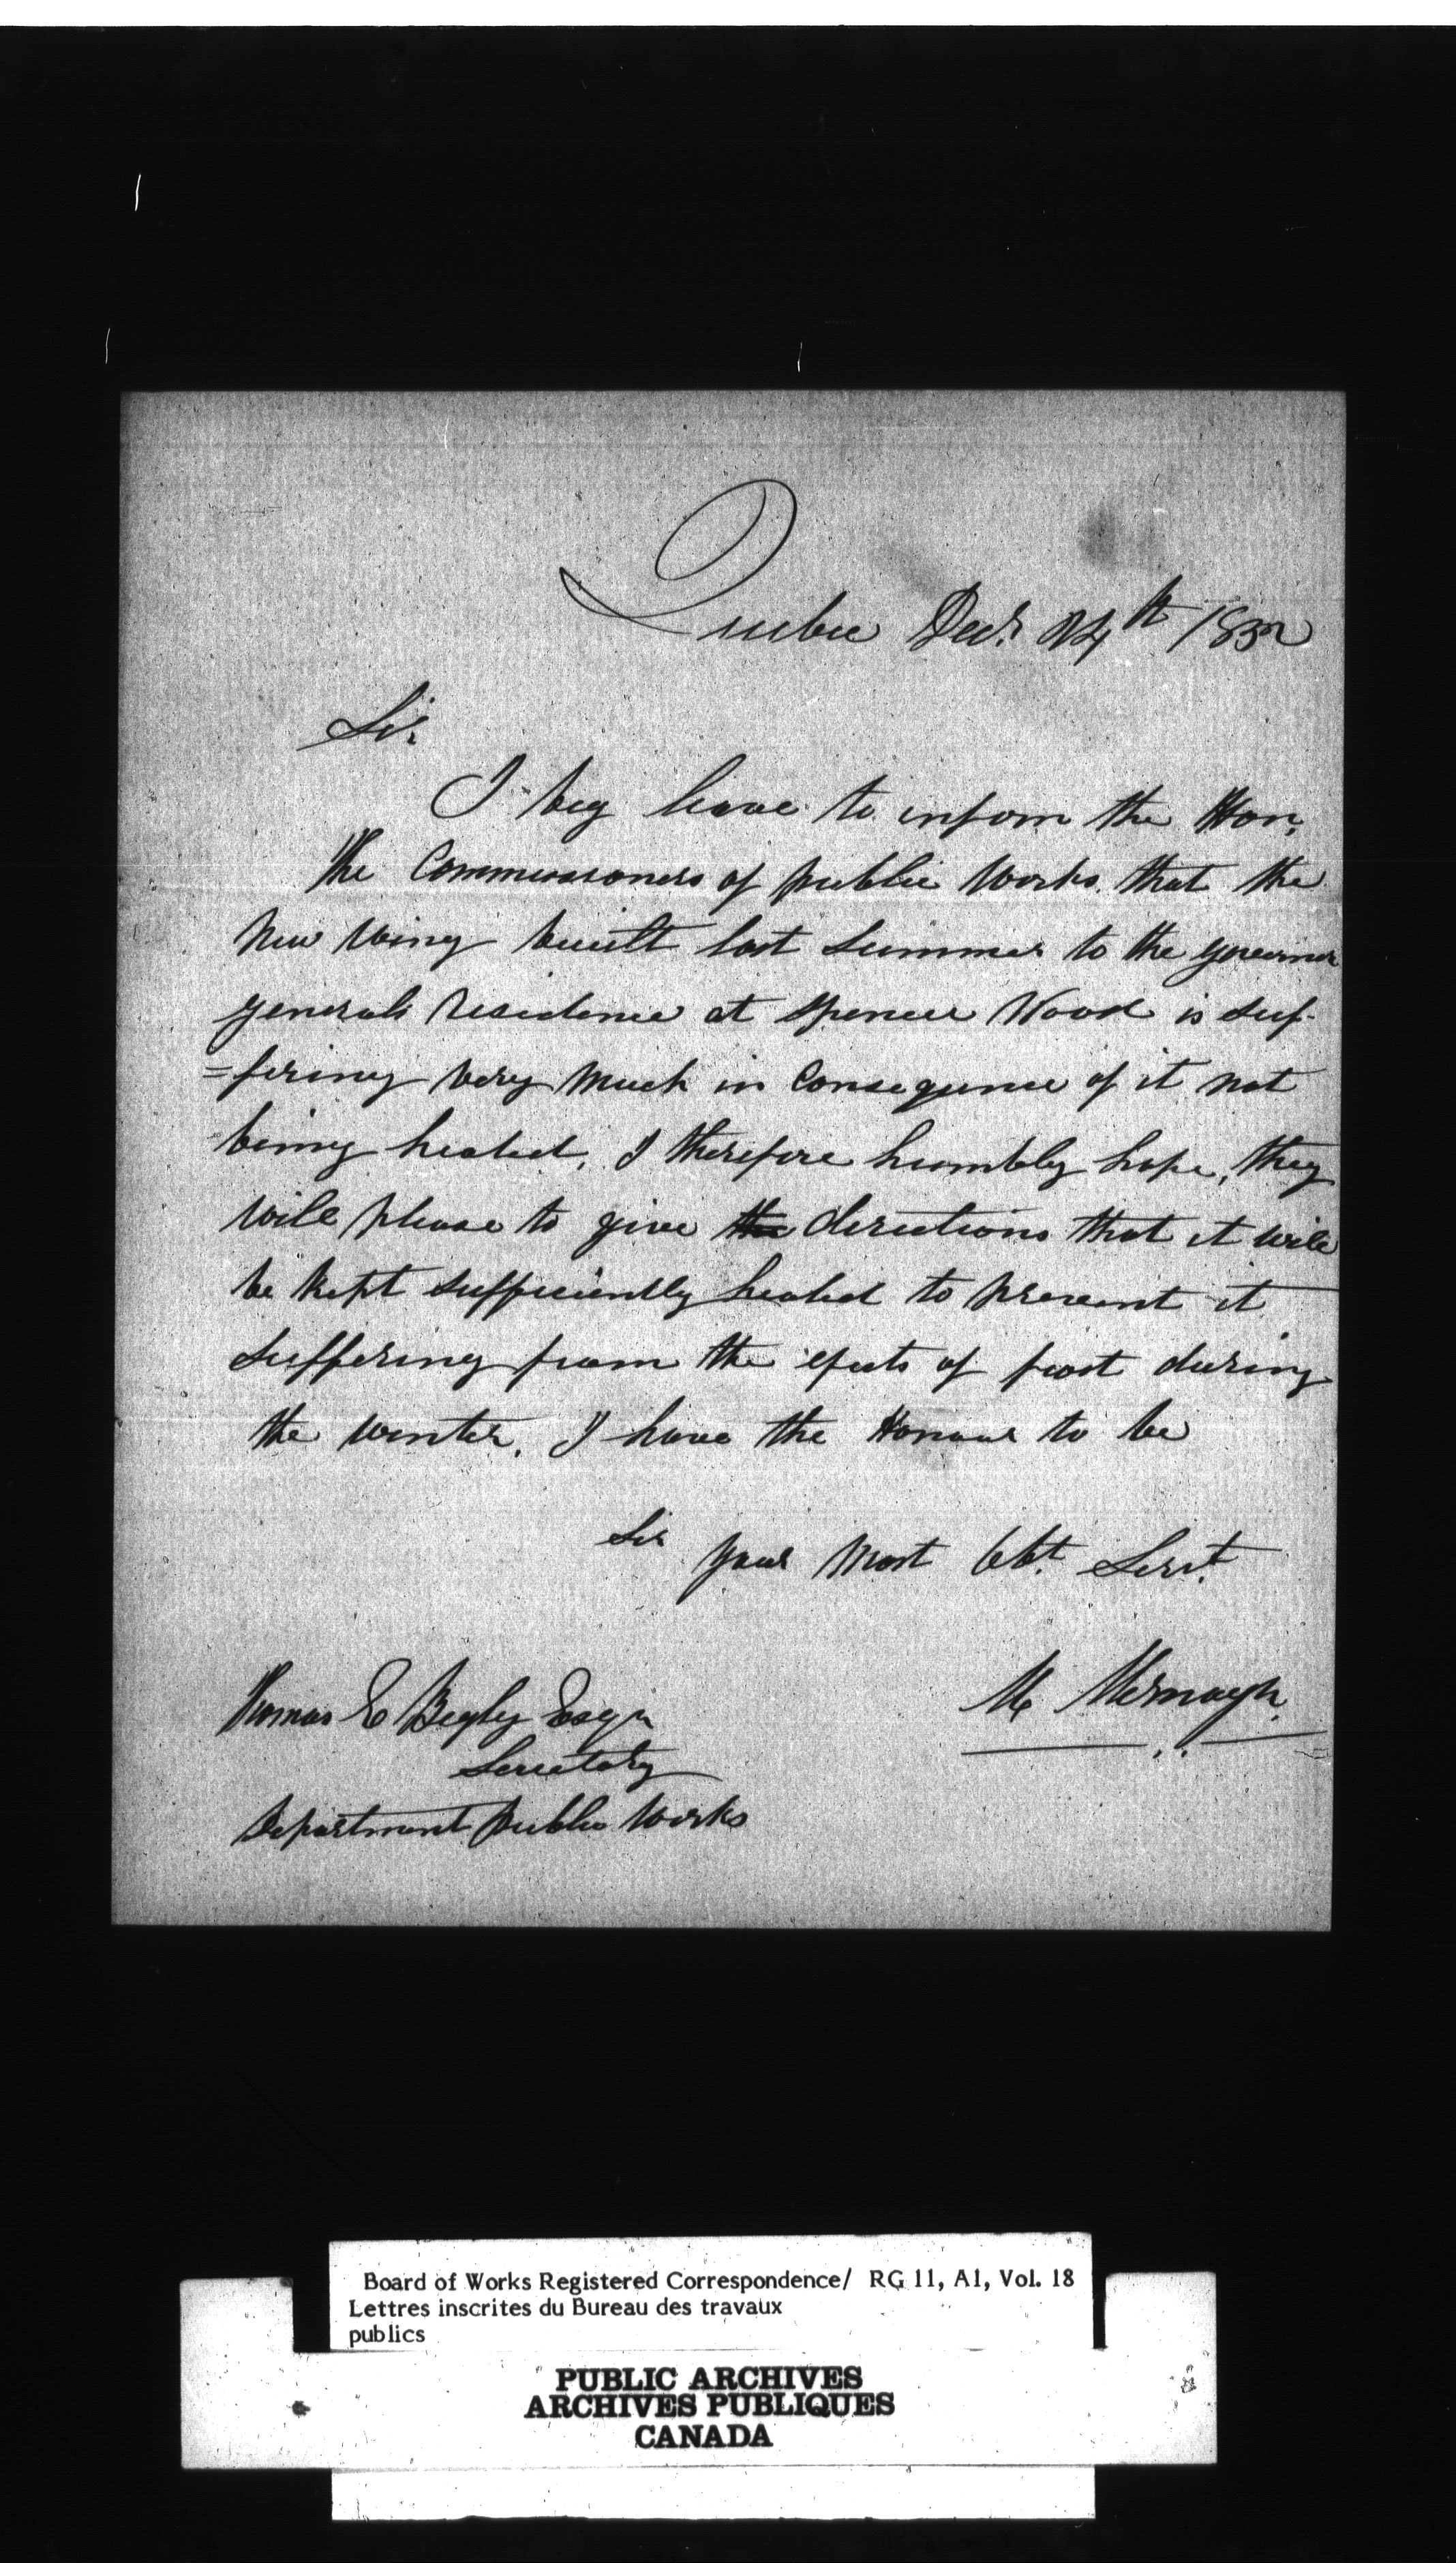 Quebec Decr. 24th 1852
Sir
I beg leave to inform the Hon,
The Commissioners of public Works that the
New Wing built last Summer to the governor
generals Residence at Spencer Wood is suf-
=fering very Much in Consequence of it not
being heated, I therefore humbly hope, they
will please to give the directions that it will
be kept sufficiently heated to prevent it
suffering from the efects of frost during
the winter. I have the Honour to be
Sir your Most Obt. Servt.
M Mernagh.
Thomas E Begly Esqr
Secretary
Department Public Works
Board of Works Registered Correspondence/ RG 11, A1, Vol. 18
Lettres inscrites du Bureau des travaux
publics
PUBLIC ARCHIVES
ARCHIVES PUBLIQUES
CANADA